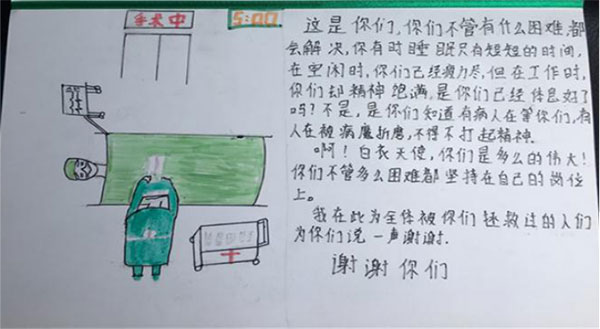 手术中
5:00
这是你们,你们不管有什么困难,都
会解决,你有时睡眠只有短短的时间,
在空闲时,你们已经疲力尽,但在工作时,
你们却精神饱满,是你们已经休息好了
吗?不是,是你们知道有病人在等你们,有
人在被病魔折磨,不得不打起精神.
啊!白衣天使,你们是多么的伟大!
你们不管多么困难都坚持在自己的岗位
上。
我在此为全体被你们拯救过的人们
为你们说一声谢谢.
谢谢你们